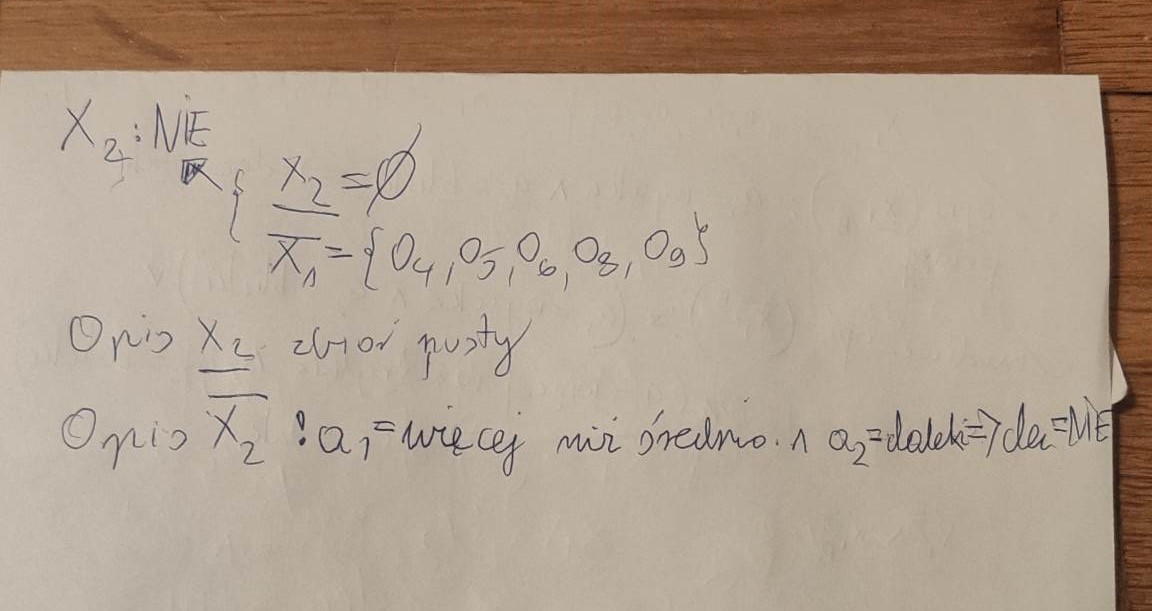 X₂: NIE
{ X₂ = ∅
X̅₁ = {O₄, O5, O₆, O₈, O₉}
Opis X₂ zbiór pusty
Opis X̅₂ : a₁ = więcej niż średnio. ∧ a₂ = daleki => de = NIE